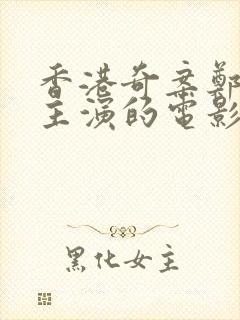 香港奇案鄭
主演的電影
黑化女主